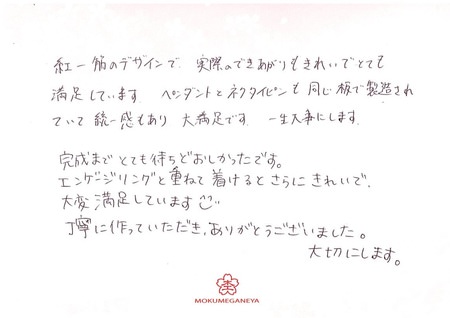 紅一筋のデザインで、実際のできあがりもきれいでとても
満足しています。ペンダントとネクタイピンも同じ板で製造され
ていて統一感もあり大満足です。一生大事にします。
完成までとても待ちどおしかったです。
エンゲージリングと重ねて着けるとさらにきれいで、
大変満足しています
丁寧に作っていただき、ありがとうございました。
大切にします。
MOKUMEGANEYA